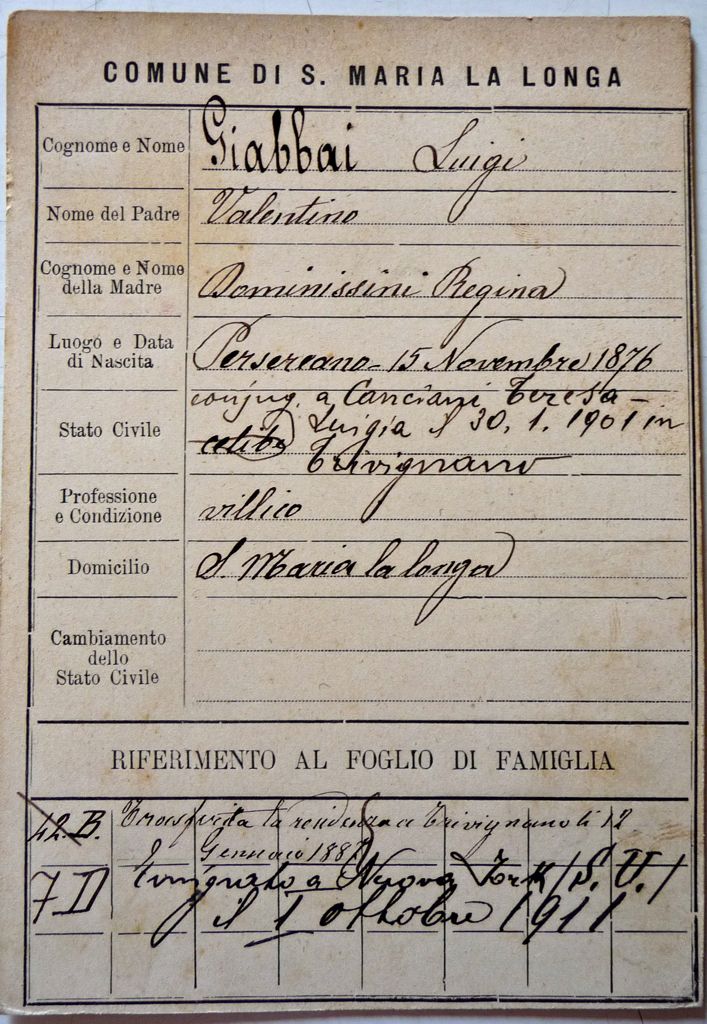 COMUNE DI S. MARIA LA LONGA
Cognome e Nome Giabbai Luigi
Nome del Padre Valentino
Cognome e Nome
della Madre Dominissini Regina
Luogo e Data
di Nascita Persereano - 15 Novembre 1876
conjug. a Canciani Teresa -
Stato Civile celibe Luigia il 30. 1. 1901 in
Trivignano
Professione
e Condizione villico
Domicilio S. Maria la longa
Cambiamento
dello
Stato Civile
RIFERIMENTO AL FOGLIO DI FAMIGLIA
42. B. Trasferita la residenza a Trivignano li 12
Gennaio
7 D Emigrato a Nuova York (S. U.)
il 1 ottobre 1911